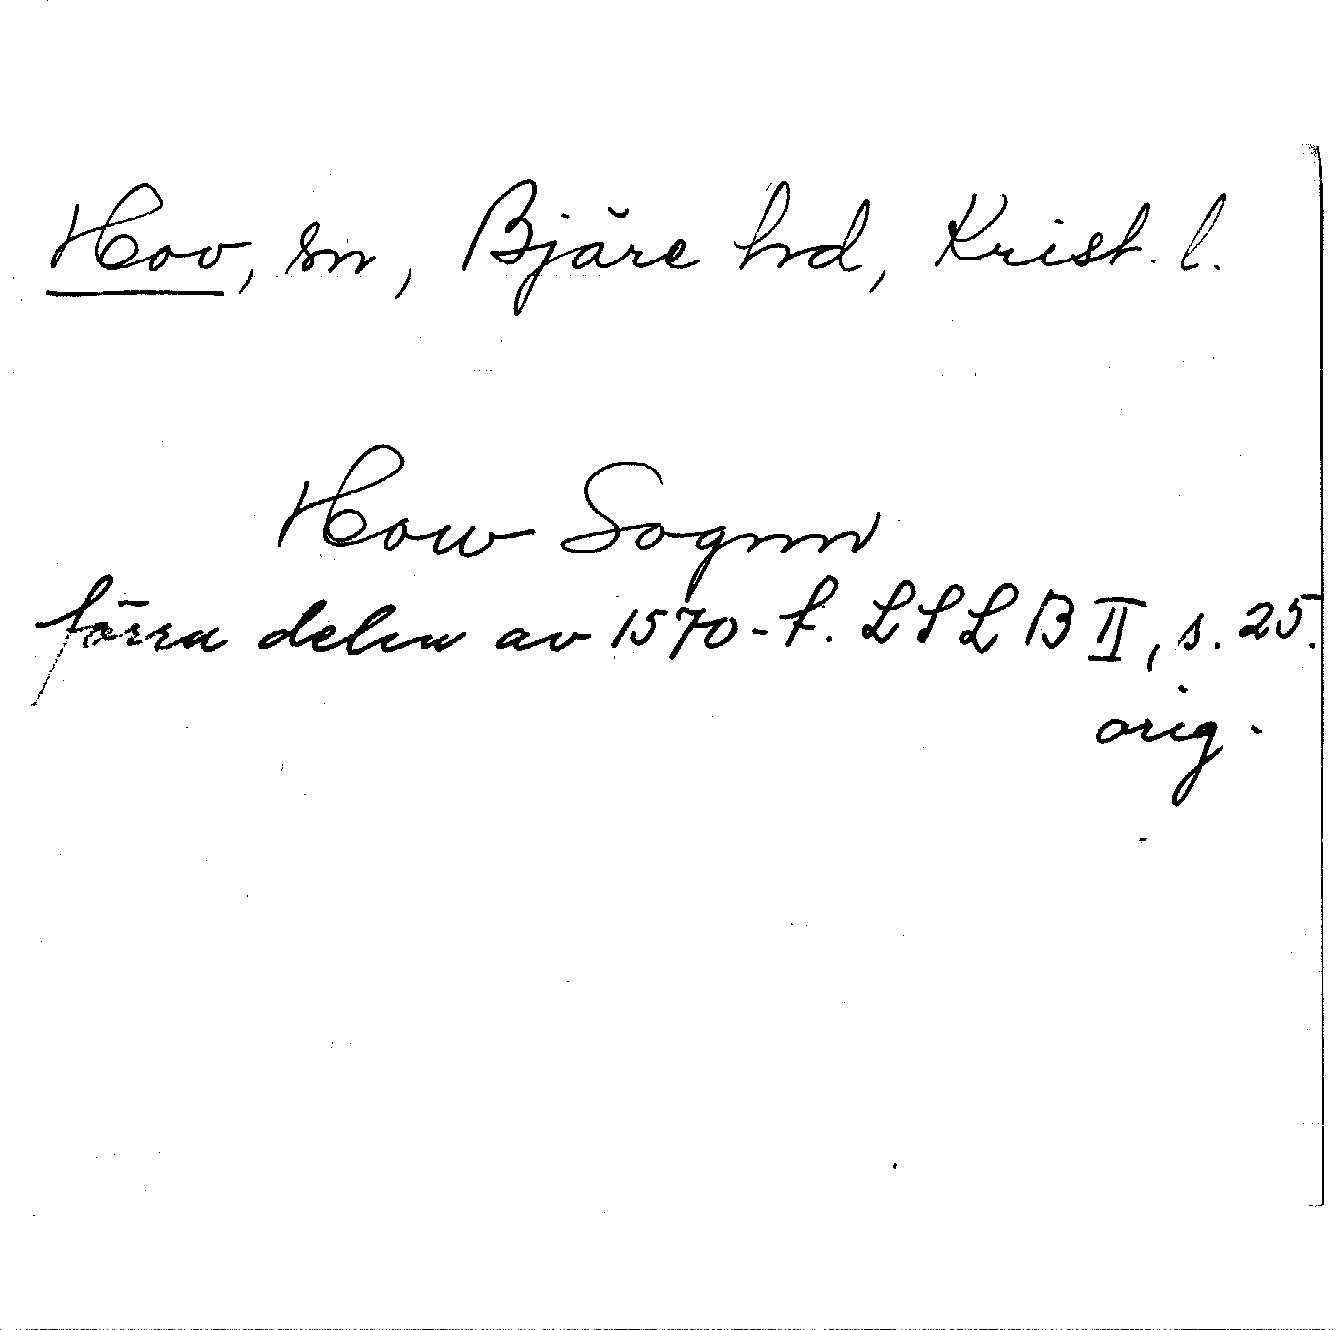 Hov, sn, Bjäre hd, Krist. l.
How Sognn
förra delen av 1570-t. LSLB II, s. 25.
orig.